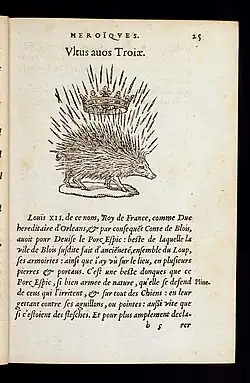 HEROÏQVES. 25
Vltus auos Troiæ.
Louïs XII. de ce nom, Roy de France, comme Duc
hereditaire d'Orleans, & par consequẽt Conte de Blois,
auoit pour Deuise le Porc Espic: beste de laquelle la
vile de Blois susdite fait d'anciẽneté, ensemble du Loup,
ses armoiries: ainsi que i'ay vù sur le lieu, en plusieurs
pierres & portaus. C'est une beste donques que ce
Porc Espic, si bien armee de nature, qu'elle se defend Pline.
de ceus qui l'irritent, & sur tout des Chiens: en leur
gettant contre ses aguillons, ou pointes: aussi vite que
si c'estoient des flesches. Et pour plus amplement decla-
b 5 rer